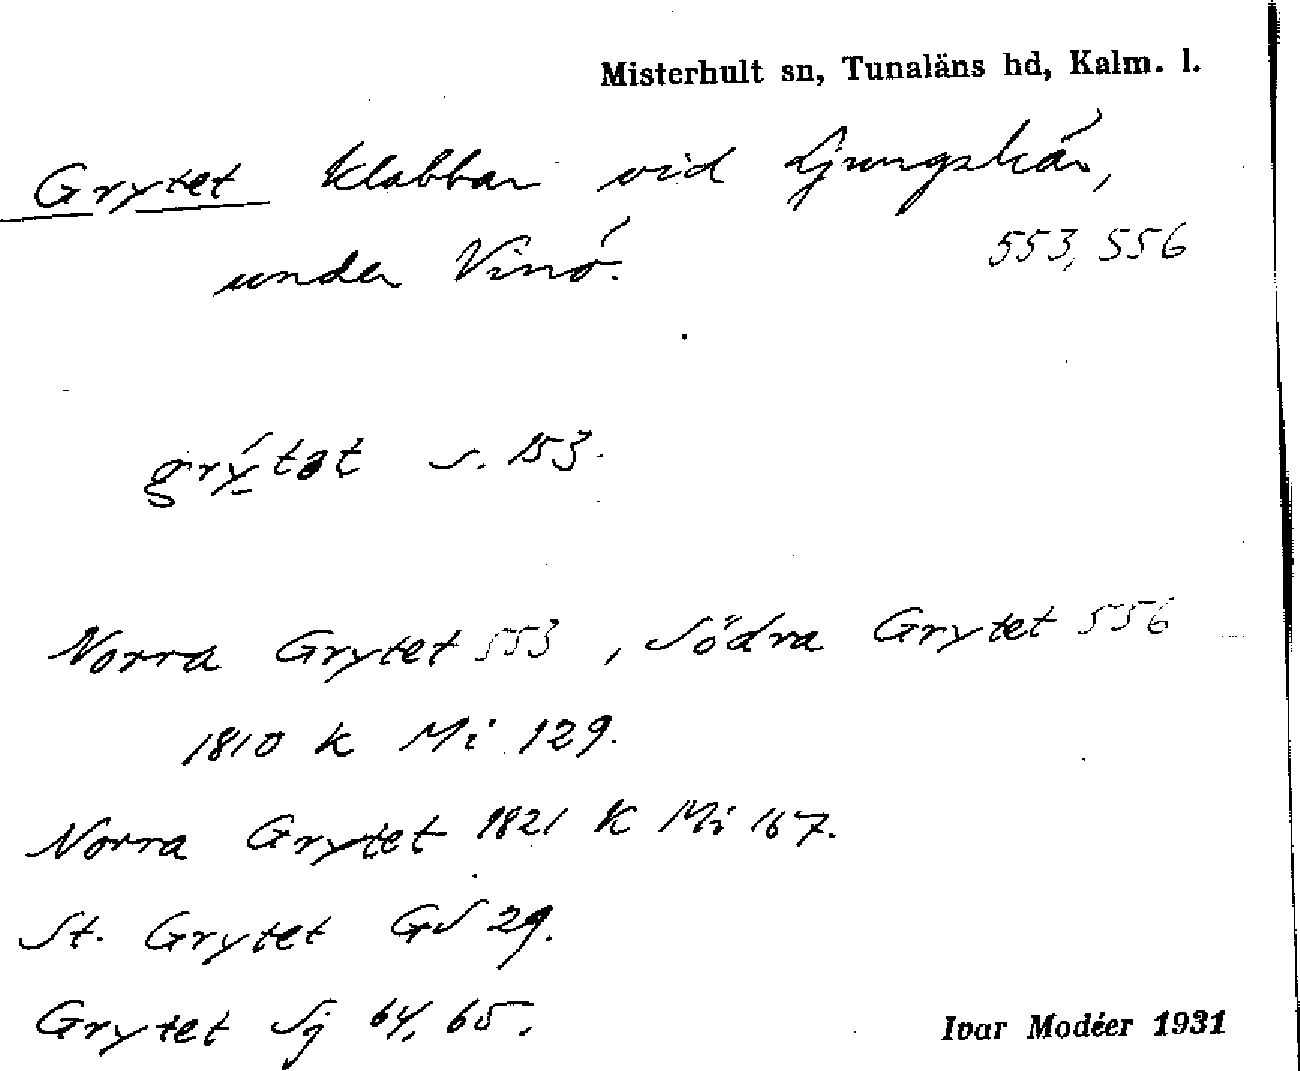 Misterhult sn, Tunaläns hd, Kalm. l.
Grytet klabbar vid Ljungskär,
under Vinö.
553, 556
grýtat s. 153.
Norra Grytet 553, Södra Grytet 556
1810 k Mi 129.
Norra Grytet 1821 K Mi 167.
St. Grytet GS 29.
Grytet Sj 64, 65.
Ivar Modéer 1931